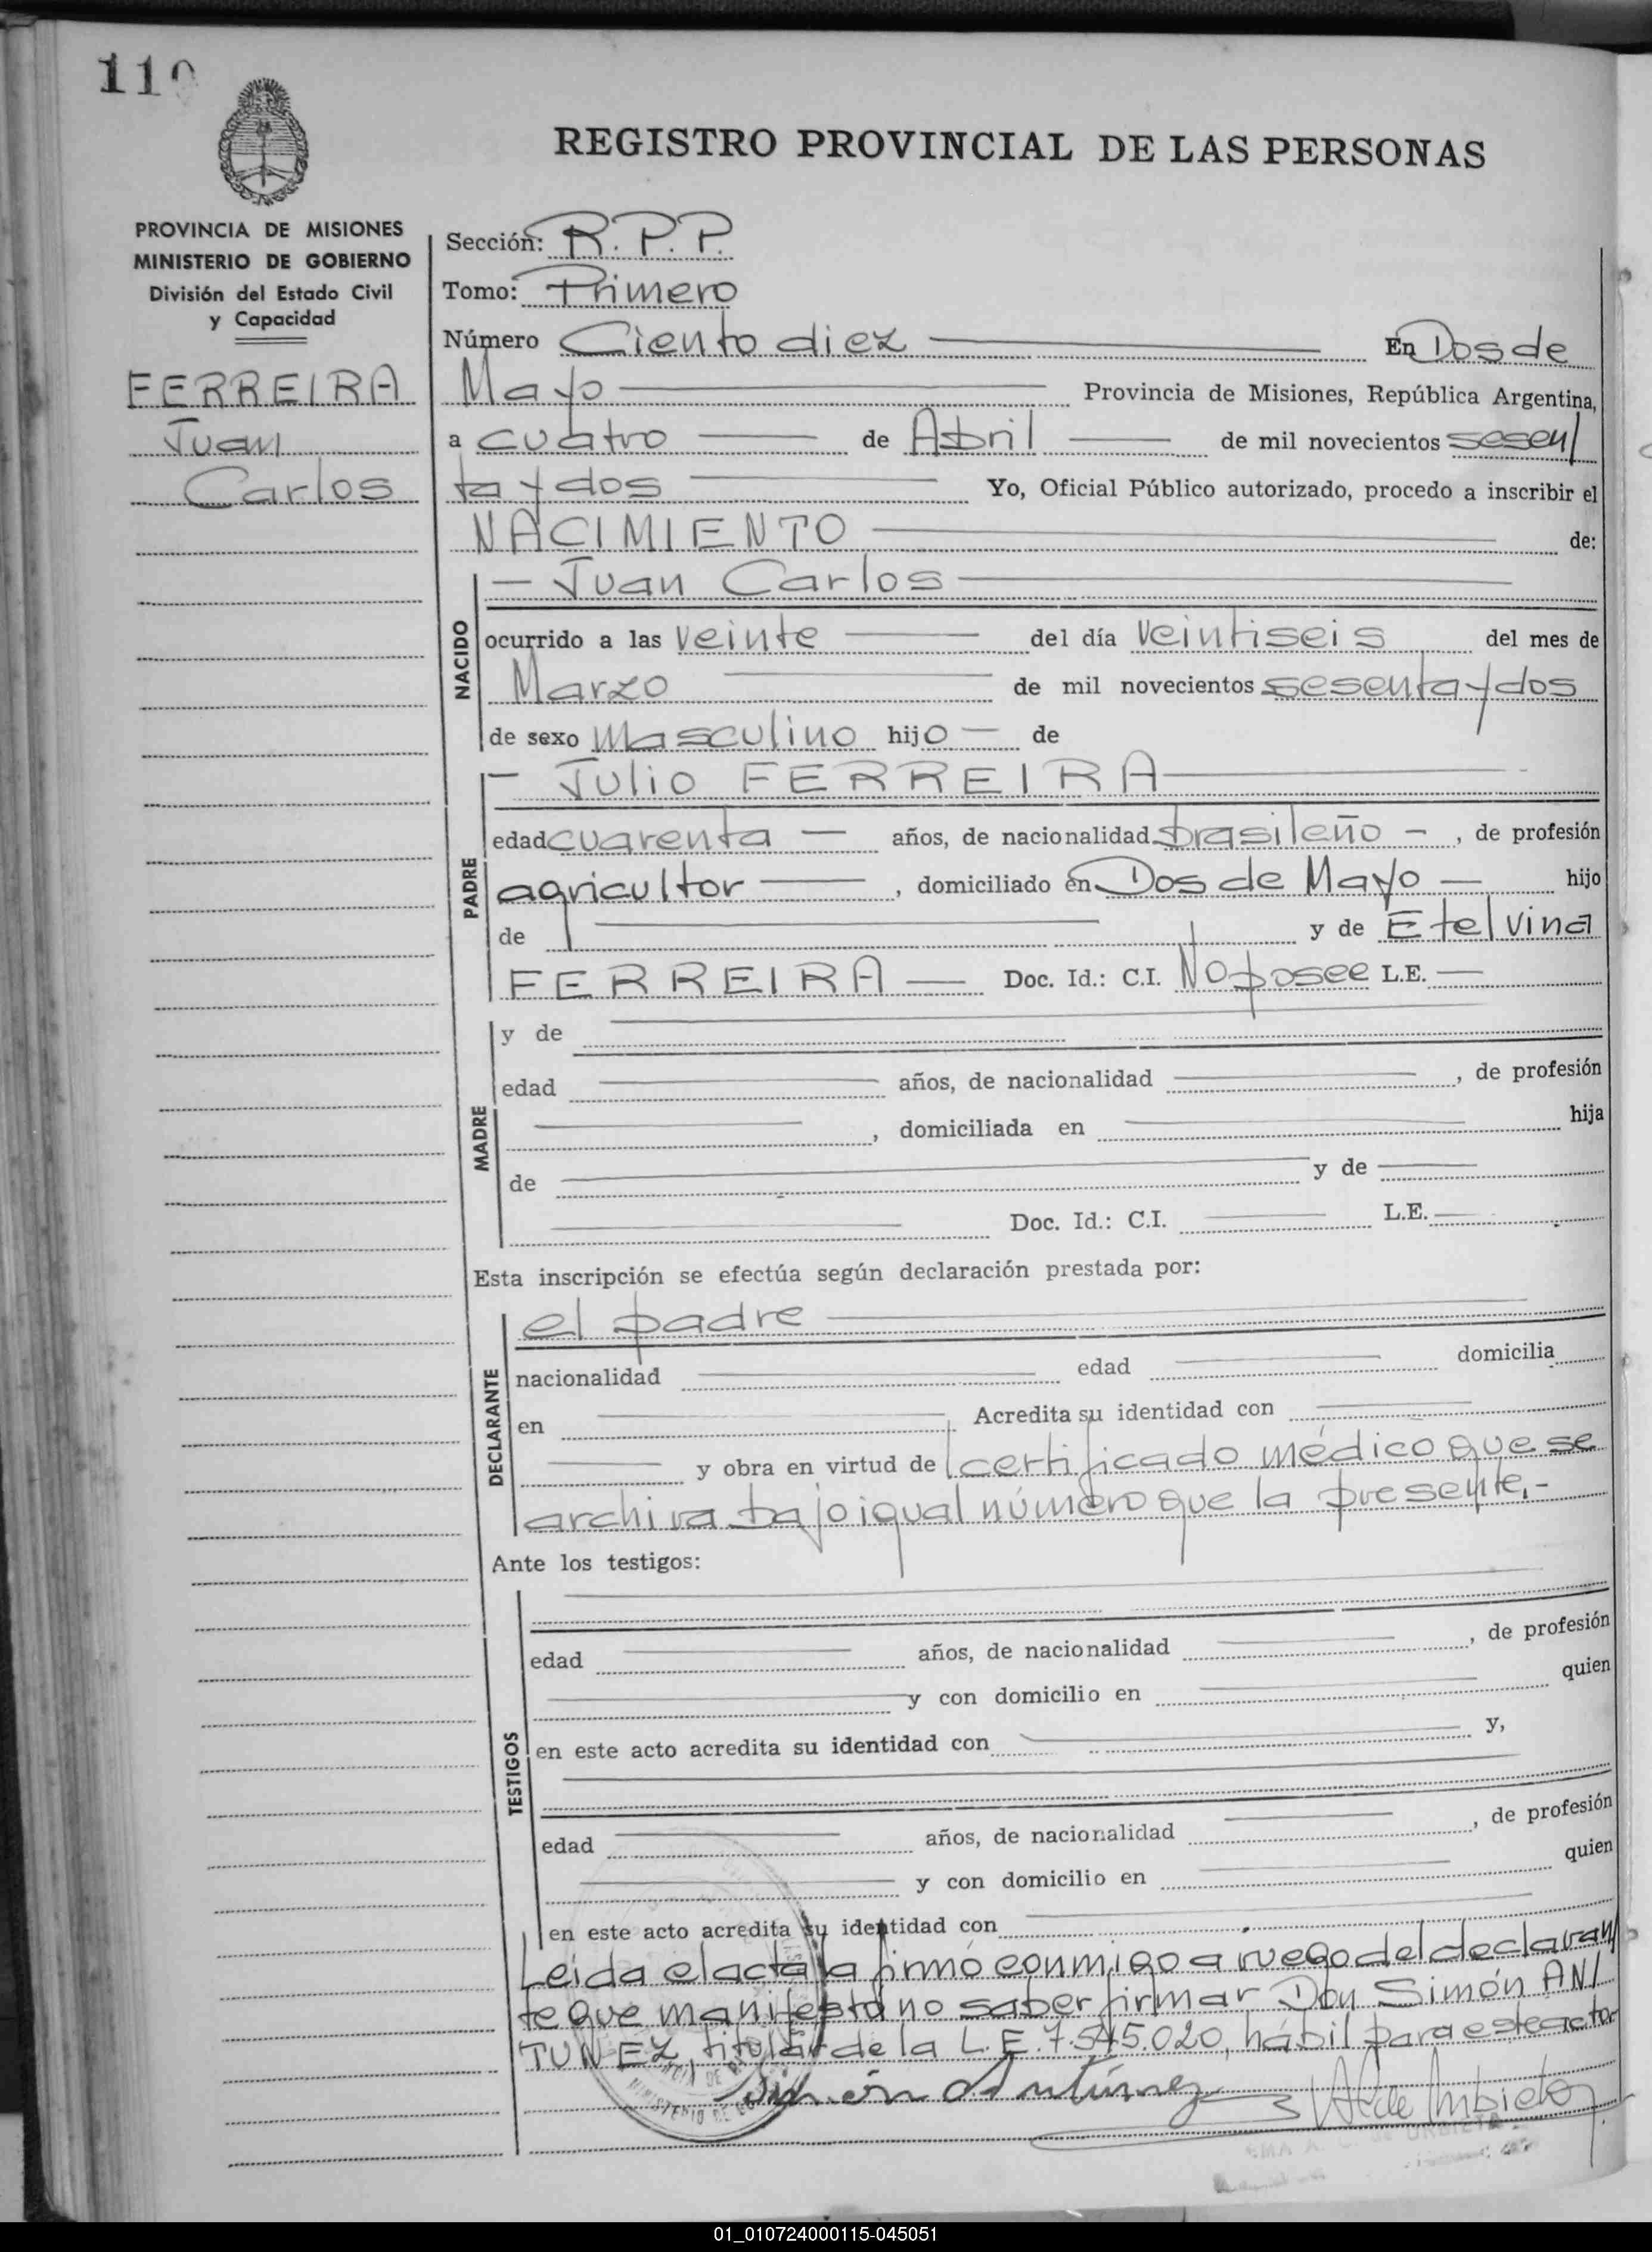 110
REGISTRO PROVINCIAL DE LAS PERSONAS
PROVINCIA DE MISIONES
MINISTERIO DE GOBIERNO
División del Estado Civil
y Capacidad
FERREIRA
Juan
Carlos
Sección: R.P.P.
Tomo: Primero
Número Ciento diez En Dos de
Mayo Provincia de Misiones, República Argentina,
a cuatro de Abril de mil novecientos sesen/
ta y dos Yo, Oficial Público autorizado, procedo a inscribir el
NACIMIENTO de:
NACIDO
Juan Carlos
ocurrido a las veinte del día veintiseis del mes de
Marzo de mil novecientos sesenta y dos
de sexo Masculino hijo de
PADRE
Julio FERREIRA
edad cuarenta años, de nacionalidad brasileño, de profesión
agricultor, domiciliado en Dos de Mayo hijo
de y de Etelvina
FERREIRA Doc. Id.: C.I. No posee L.E.
MADRE
y de
edad años, de nacionalidad , de profesión
, domiciliada en hija
de y de
Doc. Id.: C.I. L.E.
Esta inscripción se efectúa según declaración prestada por:
DECLARANTE
el padre
nacionalidad edad domicilia
en Acredita su identidad con
y obra en virtud de certificado médico que se
archiva bajo igual número que la presente.-
Ante los testigos:
TESTIGOS
edad años, de nacionalidad , de profesión
y con domicilio en quien
en este acto acredita su identidad con y,
edad años, de nacionalidad , de profesión
y con domicilio en quien
en este acto acredita su identidad con
Leida el acta la firmó conmigo a ruego del declaran/
te que manifestó no saber firmar Don Simón AN/
TUNEZ, titular de la L.E. 7.545.020, hábil para este acto
Simón Antúnez
MINISTERIO DE
01_010724000115-045051